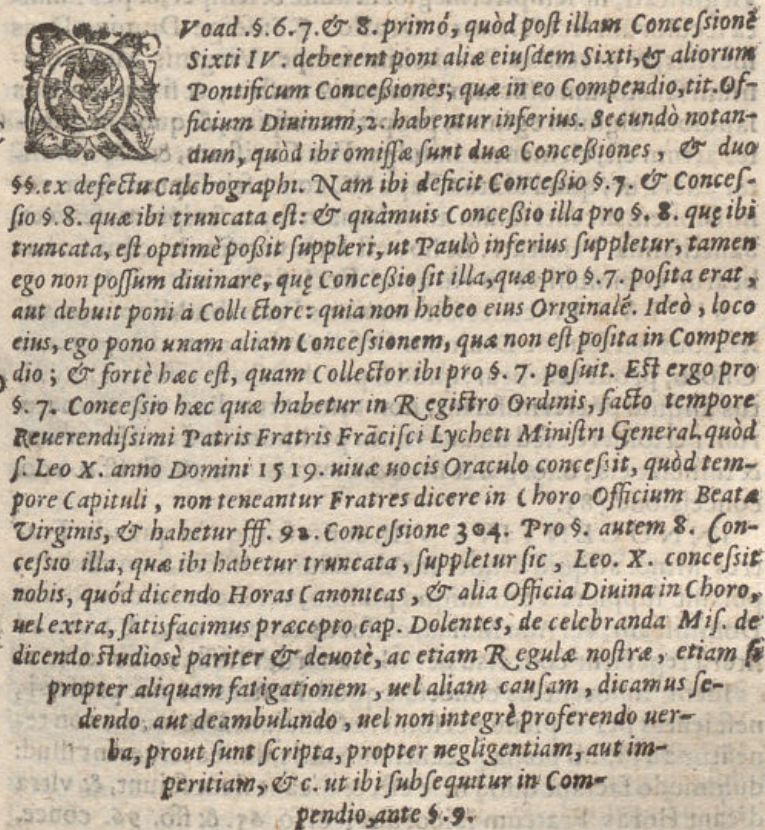 QVoad.§.6.7.& 8. primó, quòd post illam Concessionē
Sixti IV. deberent poni aliæ eiusdem Sixti,& aliorum
Pontificum Concessiones; quæ in eo Compendio,tit.Of-
ficium Diuinum,2. habentur inferius. Secundò notan-
dum, quòd ibi omissæ sunt duæ Concessiones, & duo
§§.ex defectu Calchographi. Nam ibi deficit Concessio §.7. & Conces-
sio §.8. quæ ibi truncata est: & quàmuis Concessio illa pro §. 8. quę ibi
truncata, est optimè possit suppleri, ut Paulò inferius suppletur, tamen
ego non possum diuinare, quę Concessio sit illa,quæ pro §.7. posita erat,
aut debuit poni à Collectore: quia non habeo eius Originalé. Ideò, loco
eius, ego pono unam aliam Concessionem, quæ non est posita in Compen
dio; & fortè hæc est, quam Collector ibi pro §. 7. posuit. Est ergo pro
§. 7. Concessio hæc quæ habetur in Registro Ordinis, facto tempore
Reuerendissimi Patris Fratris Frãcisci Lycheti Ministri General. quòd
s. Leo X. anno Domini 1519. uiuæ uocis Oraculo concessit, quòd tem-
pore Capituli, non teneantur Fratres dicere in Choro Officium Beatæ
Virginis, & habetur fff. 92. Concessione 304. Pro §. autem 8. Con-
cessio illa, quæ ibi habetur truncata, suppletur sic, Leo. X. concessit
nobis, quód dicendo Horas Canonicas, & alia Officia Diuina in Choro,
uel extra, satisfacimus præcepto cap. Dolentes, de celebranda Mis. de
dicendo studiosè pariter & deuotè, ac etiam Regulæ nostræ, etiam si
propter aliquam fatigationem, uel aliam causam, dicamus se-
dendo aut deambulando, uel non integrè proferendo uer-
ba, prout sunt scripta, propter negligentiam, aut im-
peritiam, &c. ut ibi subsequitur in Com-
pendio,ante §.9.